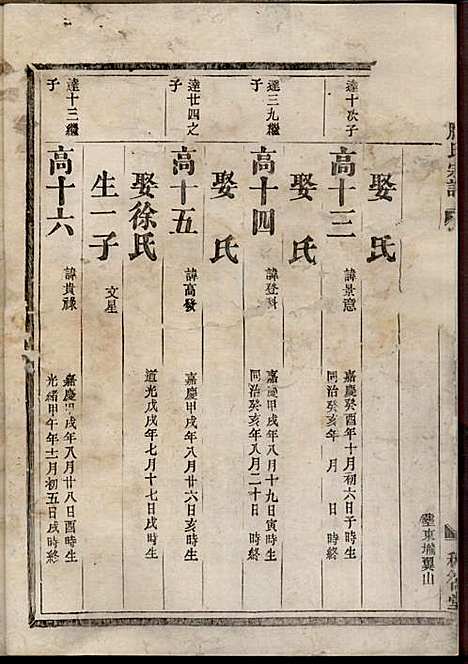 氏宗譜
娶 氏
塟東壠翼山
達十次子
高十三
諱景意
嘉慶癸酉年十月初六日子時生
同治癸亥年 月 日 時終
娶 氏
達三九繼子
高十四
諱登科
嘉慶甲戌年八月十九日寅時生
同治癸亥年八月二十日 時終
娶 氏
達廿四之子
高十五
諱高發
嘉慶甲戌年八月廿六日亥時生
娶徐氏
道光戊戌年七月十七日戌時生
生一子
文星
達十三繼子
高十六
諱貴祿
嘉慶甲戌年八月廿八日酉時生
光緒甲午年十一月初五日戌時終